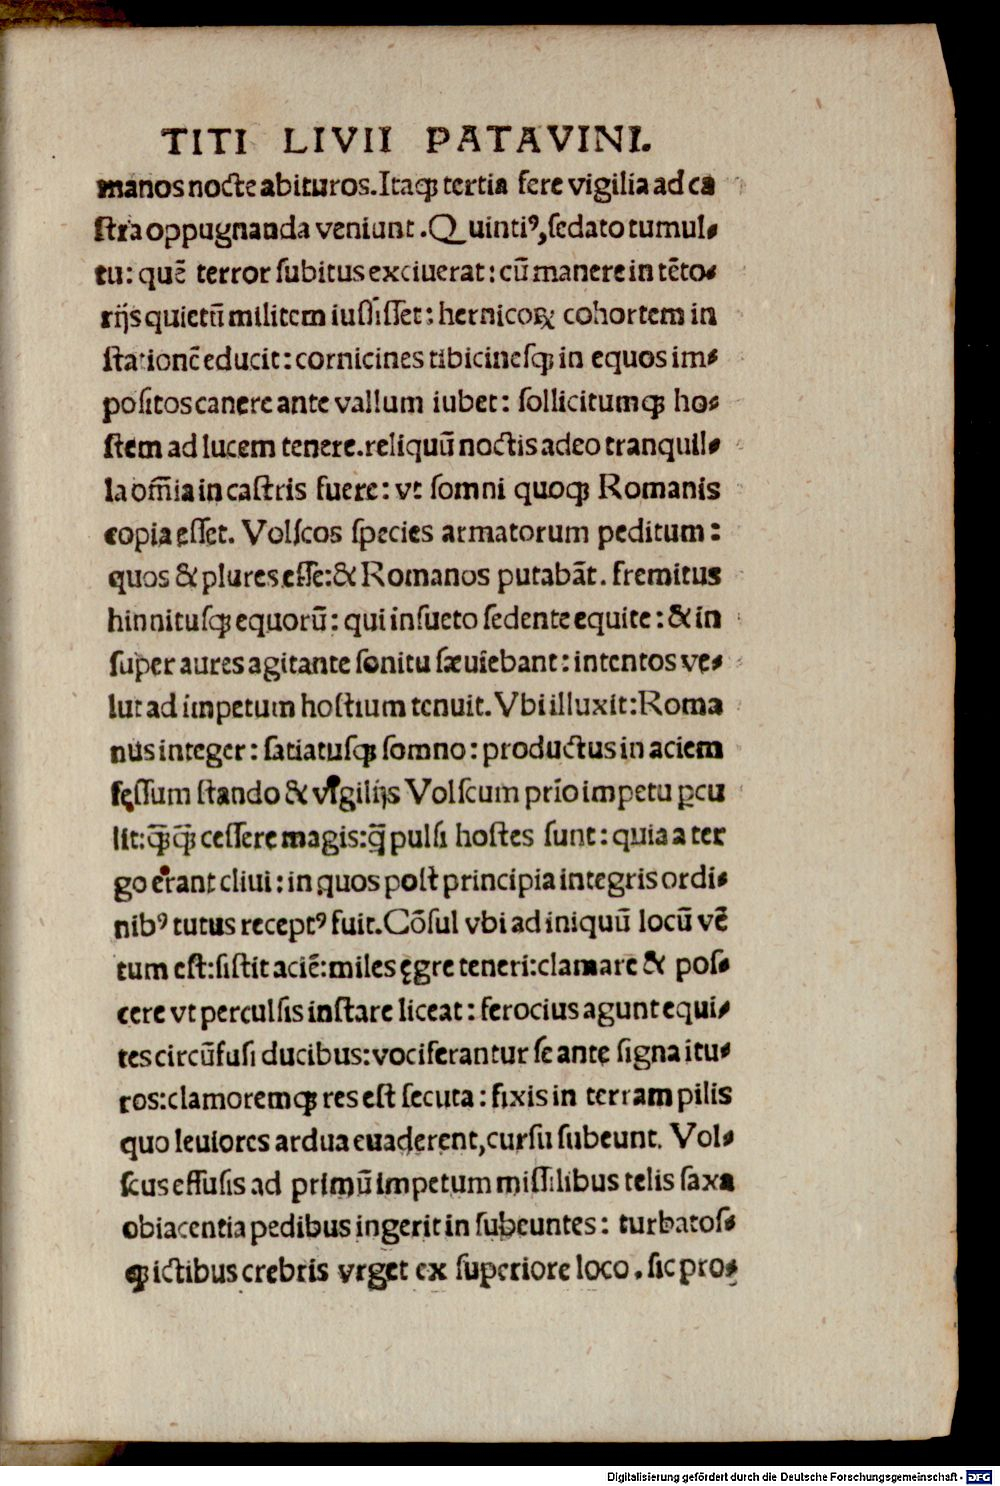 TITI LIVII PATAVINI.
manos nocte abituros. Itaqꝫ tertia fere vigilia ad ca
ſtra oppugnanda veniunt. Quintiꝰ, ſedato tumul⸗
tu: quē terror ſubitus exciuerat: cū manere in tēto⸗
rijs quietū militem iuſſiſſet: hernicoꝝ cohortem in
ſtationē educit: cornicines tibicineſqꝫ in equos im⸗
poſitos canere ante vallum iubet: ſollicitumqꝫ ho⸗
ſtem ad lucem tenere. reliquū noctis adeo tranquil⸗
la om̄ia in caſtris fuere: vt ſomni quoqꝫ Romanis
copia eſſet. Volſcos ſpecies armatorum peditum:
quos & plures eſſe: & Romanos putabāt. fremitus
hinnituſqꝫ equorū: qui inſueto ſedente equite: & in
ſuper aures agitante ſonitu ſæuiebant: intentos ve⸗
lut ad impetum hoſtium tenuit. Vbi illuxit: Roma
nus integer: ſatiatuſqꝫ ſomno: productus in aciem
fęſſum ſtando & vigilijs Volſcum prīo impetu ꝑcu
lit: qꝫ̄qꝫ̄ ceſſere magis: q̄ pulſi hoſtes ſunt: quia a ter
go erant cliui: in quos poſt principia integris ordi⸗
nibꝰ tutus receptꝰ fuit. Cōſul vbi ad iniquū locū vē
tum eſt: ſiſtit aciē: miles ęgre teneri: clamare & poſ⸗
cere vt perculſis inſtare liceat: ferocius agunt equi⸗
tes circūfuſi ducibus: vociferantur ſe ante ſigna itu⸗
ros: clamoremqꝫ res eſt ſecuta: fixis in terram pilis
quo leuiores ardua euaderent, curſu ſubeunt. Vol⸗
ſcus effuſis ad primū impetum miſſilibus telis ſaxa
obiacentia pedibus ingerit in ſubeuntes: turbatoſ⸗
qꝫ ictibus crebris vrget ex ſuperiore loco. ſic pro⸗
Digitalisierung gefördert durch die Deutsche Forschungsgemeinschaft - DFG